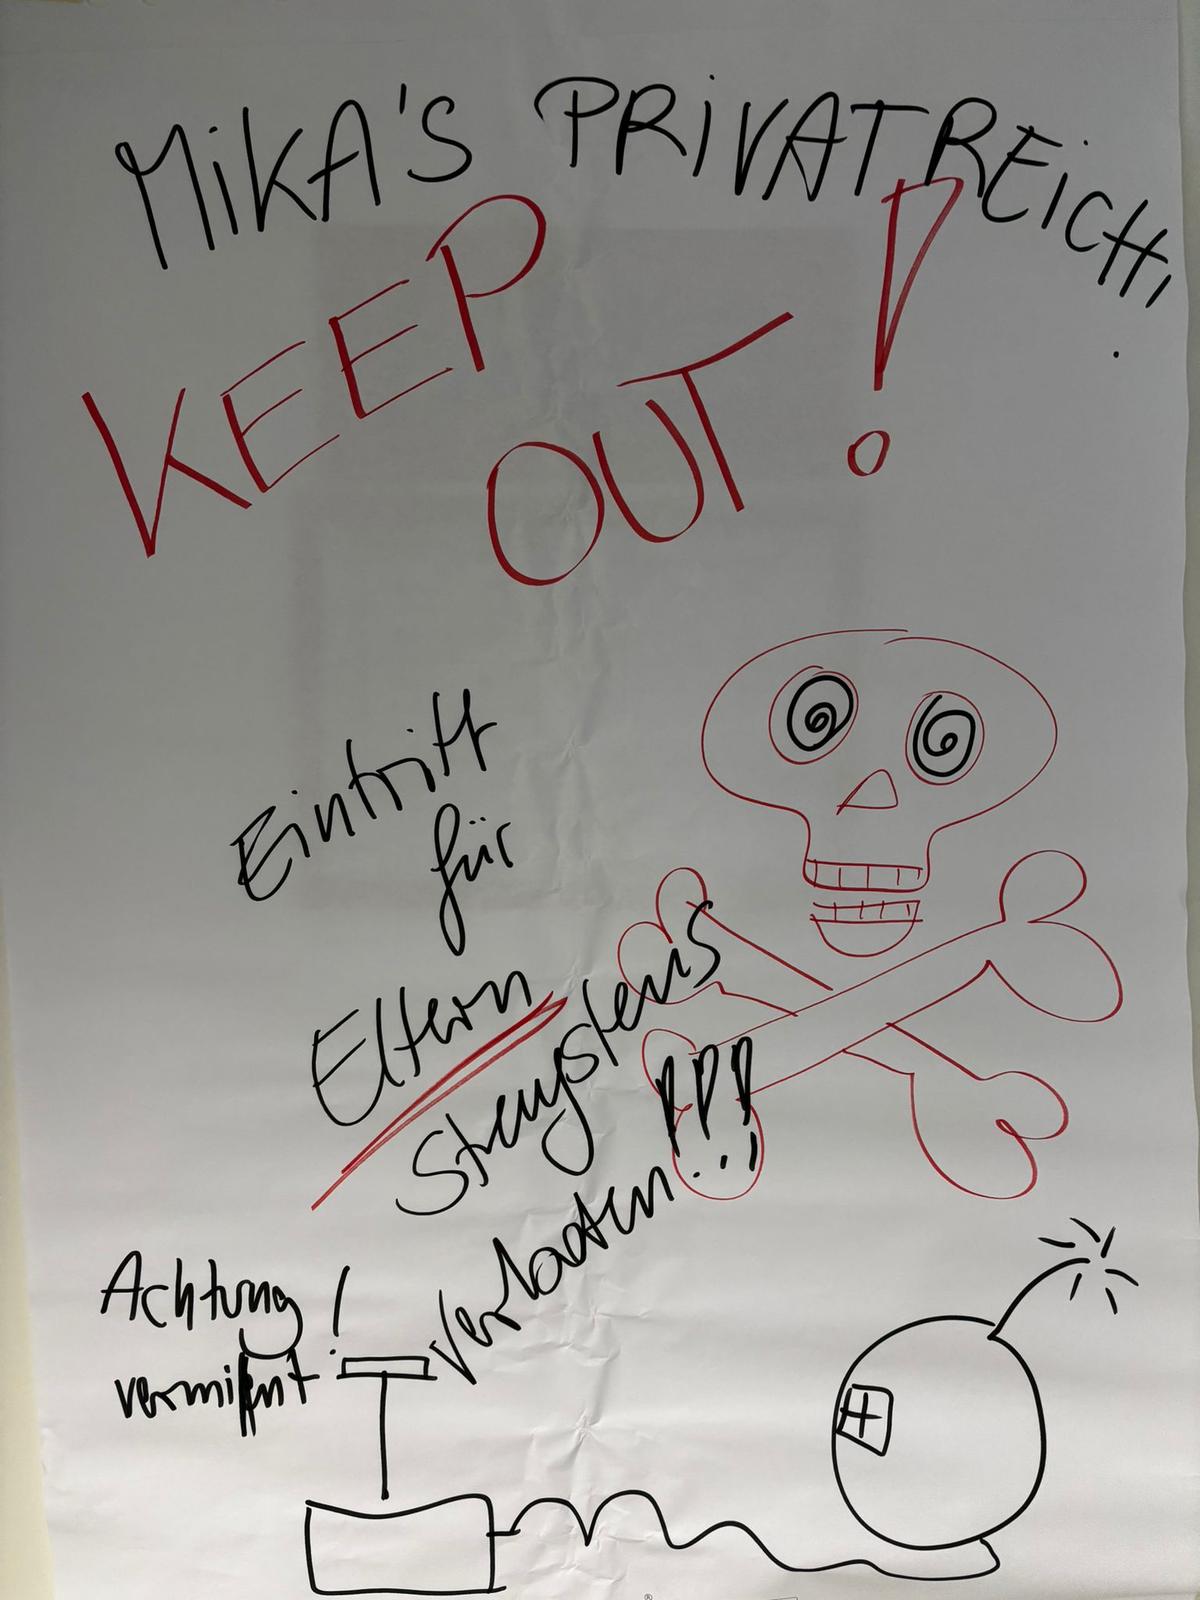 MiKA'S PRiVATREiCH,
KEEP
OUT!
Eintritt
für
Eltern
strengstens
verboten!!!
Achtung
vermint!